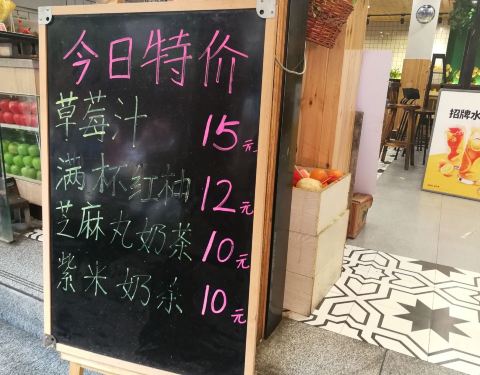 今日特价
草莓汁 15元
满杯红柚 12元
芝麻丸奶茶 10元
紫米奶茶 10元
招牌水